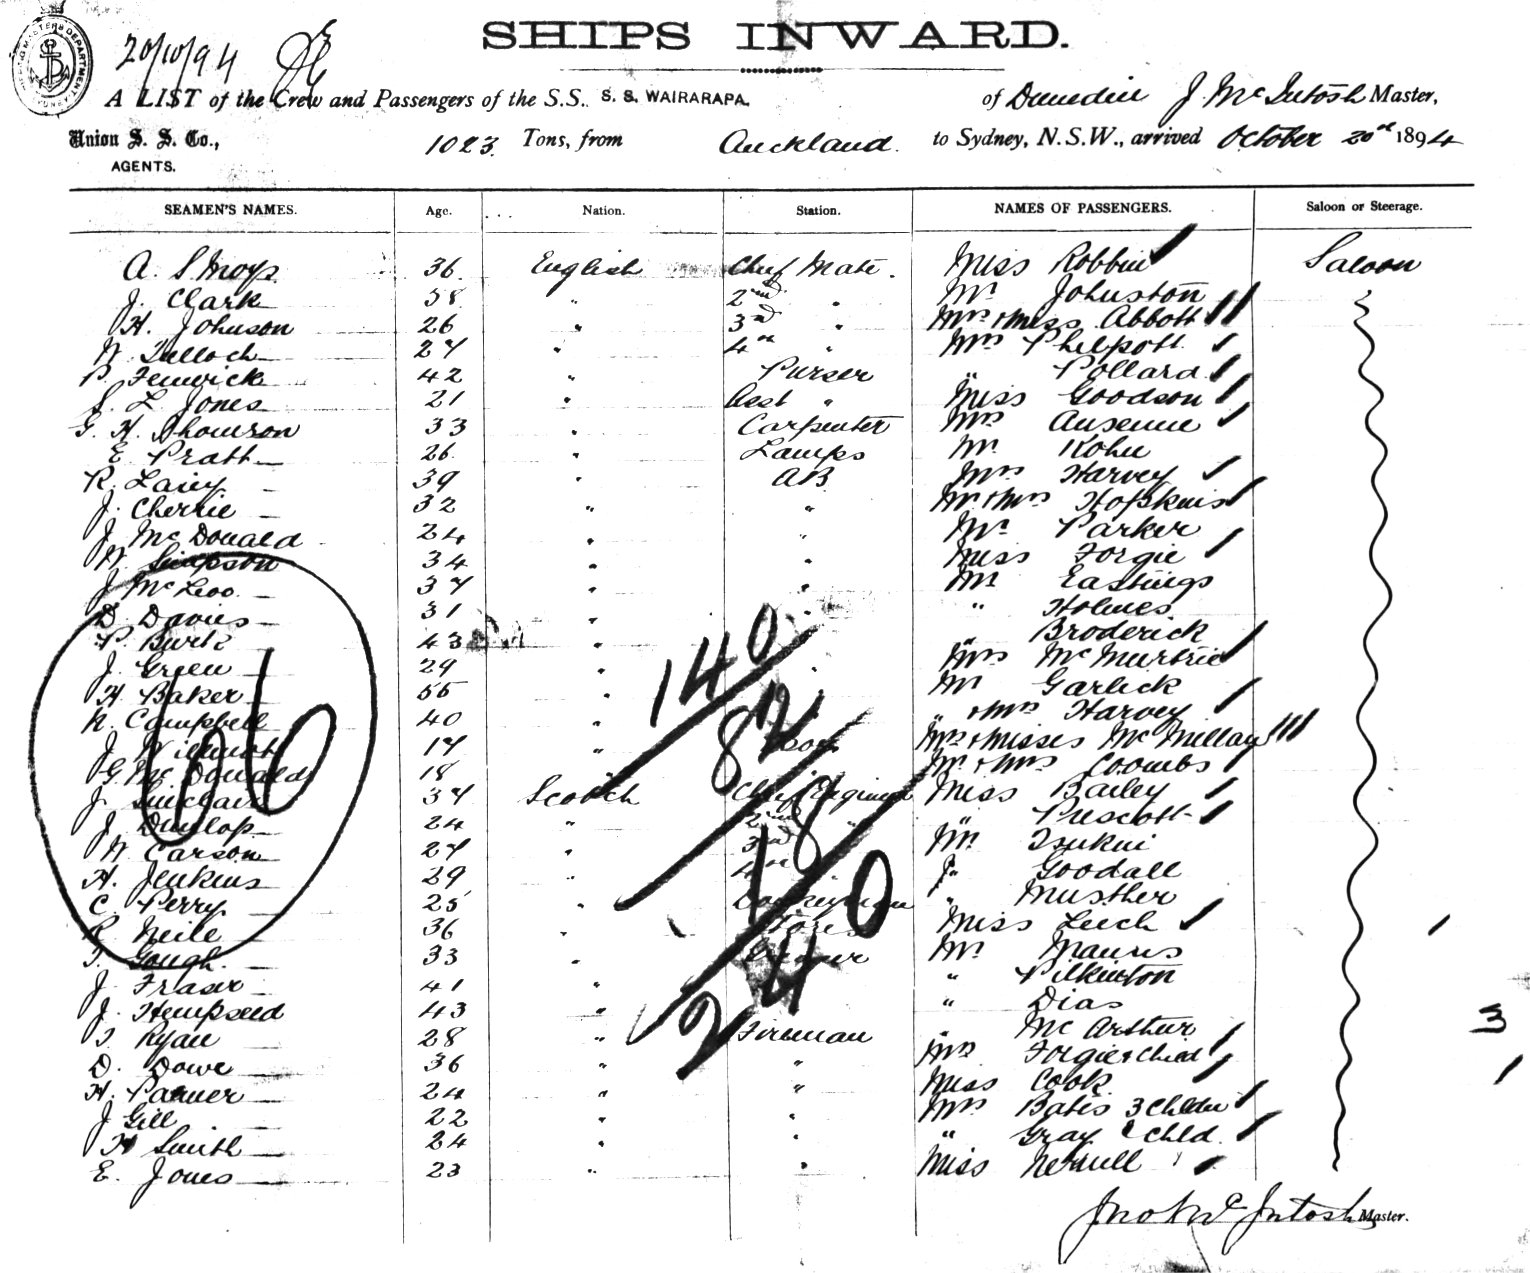 SHIPS INWARD.
20/10/94
A LIST of the Crew and Passengers of the S.S. S. S. WAIRARAPA. of Dunedin J. McIntosh Master,
Union S. S. Co., 1023 Tons, from Auckland. to Sydney, N.S.W., arrived October 20th 1894
AGENTS.
SEAMEN'S NAMES. Age. Nation. Station. NAMES OF PASSENGERS. Saloon or Steerage.
A. S. Moys 36 English Chief Mate. Miss Robbin Saloon
J. Clark 38 " 2nd " Mr Johnston
H. Johnson 26 " 3rd " Mrs & Miss Abbott
W. Tulloch 27 " 4th " Mrs Philpott
P. Fenwick 42 " Purser " Pollard
S. L. Jones 21 " Asst " Miss Goodson
G. H. Thomson 33 " Carpenter Mrs Ausenne
E Pratt 26 " Lamps Mr Kohn
R. Lairy 39 " AB Mrs Harvey
J. Cherrie 32 " " Mr & Mrs Hopkins
J. McDonald 24 " " Mr Parker
W. Simpson 34 " " Miss Forgie
J McLeod 37 " " Mr Eastings
D Davies 31 " " " Holmes
P. Burke 43 " Broderick
J. Green 29 " " Mrs McMurtrie
H Baker 55 " Mr Garlick
N. Campbell 40 " " & Mrs Harvey
J. Willmott 17 " Boy Mrs & Misses McMillan
G. McDonald 18 " Mr & Mrs Coombs
J. Sinclair 37 Scotch Chief Engineer Miss Bailey
J. Dunlop 24 " 2nd " " Prescott
W Carson 27 " 3rd Mr Tsukui
H. Jenkins 29 " 4th " Goodall
C. Perry 25 " Donkeyman " Musther
R Neile 36 " Stores Miss Leech
T. Gough. 33 " Greaser Mr Manns
J Fraser 41 " " Pilkinton
J. Hempseed 43 " " Dias
T. Ryan 28 " Fireman " McArthur
D. Dowe 36 " " Mrs Forgie & Child
H. Palmer 24 " " Miss Cook
J Gill 22 " " Mrs Bates 3 Childn
H Smith 24 " " " Gray & Chld.
E. Jones 23 " " Miss Nevill
66
140
82
18
240
3
Jno McIntosh Master.